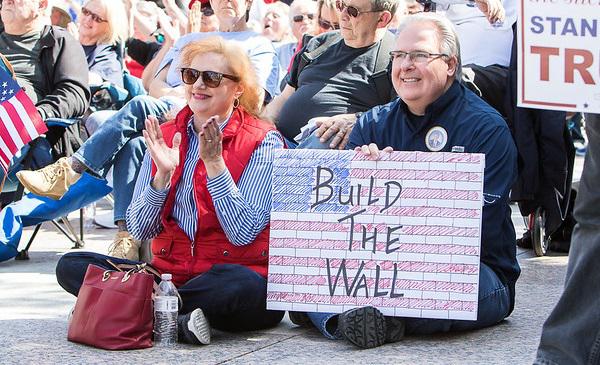 BuilD
THE
WALL
STAN
TRU